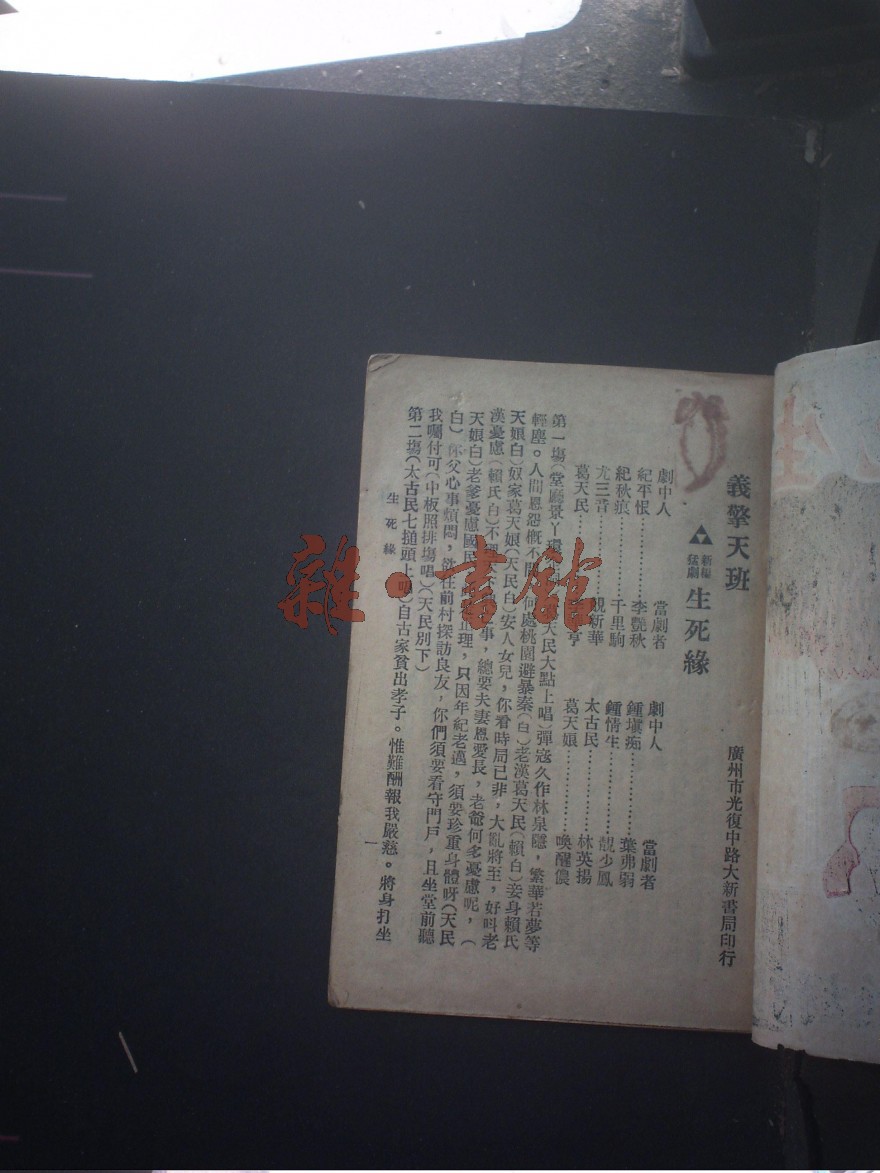 義擎天班
新編猛劇 生死緣
廣州市光復中路大新書局印行
劇中人 當劇者 劇中人 當劇者
紀平恨…………李艷秋 鍾塡痴…………葉弗弱
紀秋痕…………千里駒 鍾情生…………靚少鳳
尤三昔…………靚新華 太古民…………林英揚
葛天民…………亨 葛天娘…………喚醒儂
第一塲(堂廳景丫環 天民大點上唱)彈宼久作林泉隱,繁華若夢等
輕塵。人間恩怨槪不聞 何處桃園避暴秦(白)老漢葛天民(賴白)妾身賴氏
天娘白)奴家葛天娘(天民白)安人女兒,你看時局已非,大亂將至,好呌老
漢憂慮(賴氏白)不 事,總要夫妻恩愛長,老爺何多憂慮呢,(
天娘白)老爹憂慮國民 正理,只因年紀老邁,須要珍重身體呀(天民
白)你父心事煩悶,欲往前村探訪良友,你們須要看守門戶,且坐堂前聽
我囑付可(中板照排塲唱)(天民別下)
第二塲(太古民七搥頭上唱)自古家貧出孝子。惟難酬報我嚴慈。將身打坐
生死緣
一
雜·書館